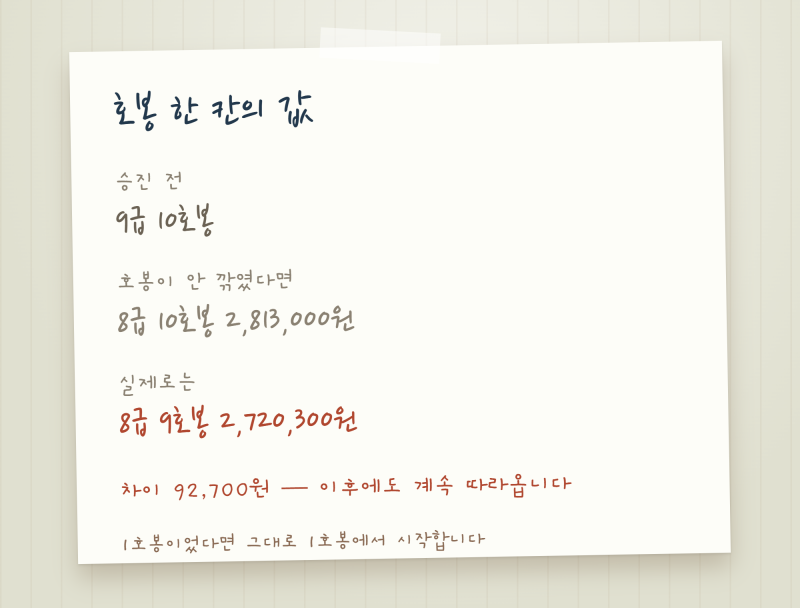 호봉 한 칸의 값
승진 전
9급 10호봉
호봉이 안 깎였다면
8급 10호봉 2,813,000원
실제로는
8급 9호봉 2,720,300원
차이 92,700원 — 이후에도 계속 따라옵니다
1호봉이었다면 그대로 1호봉에서 시작합니다